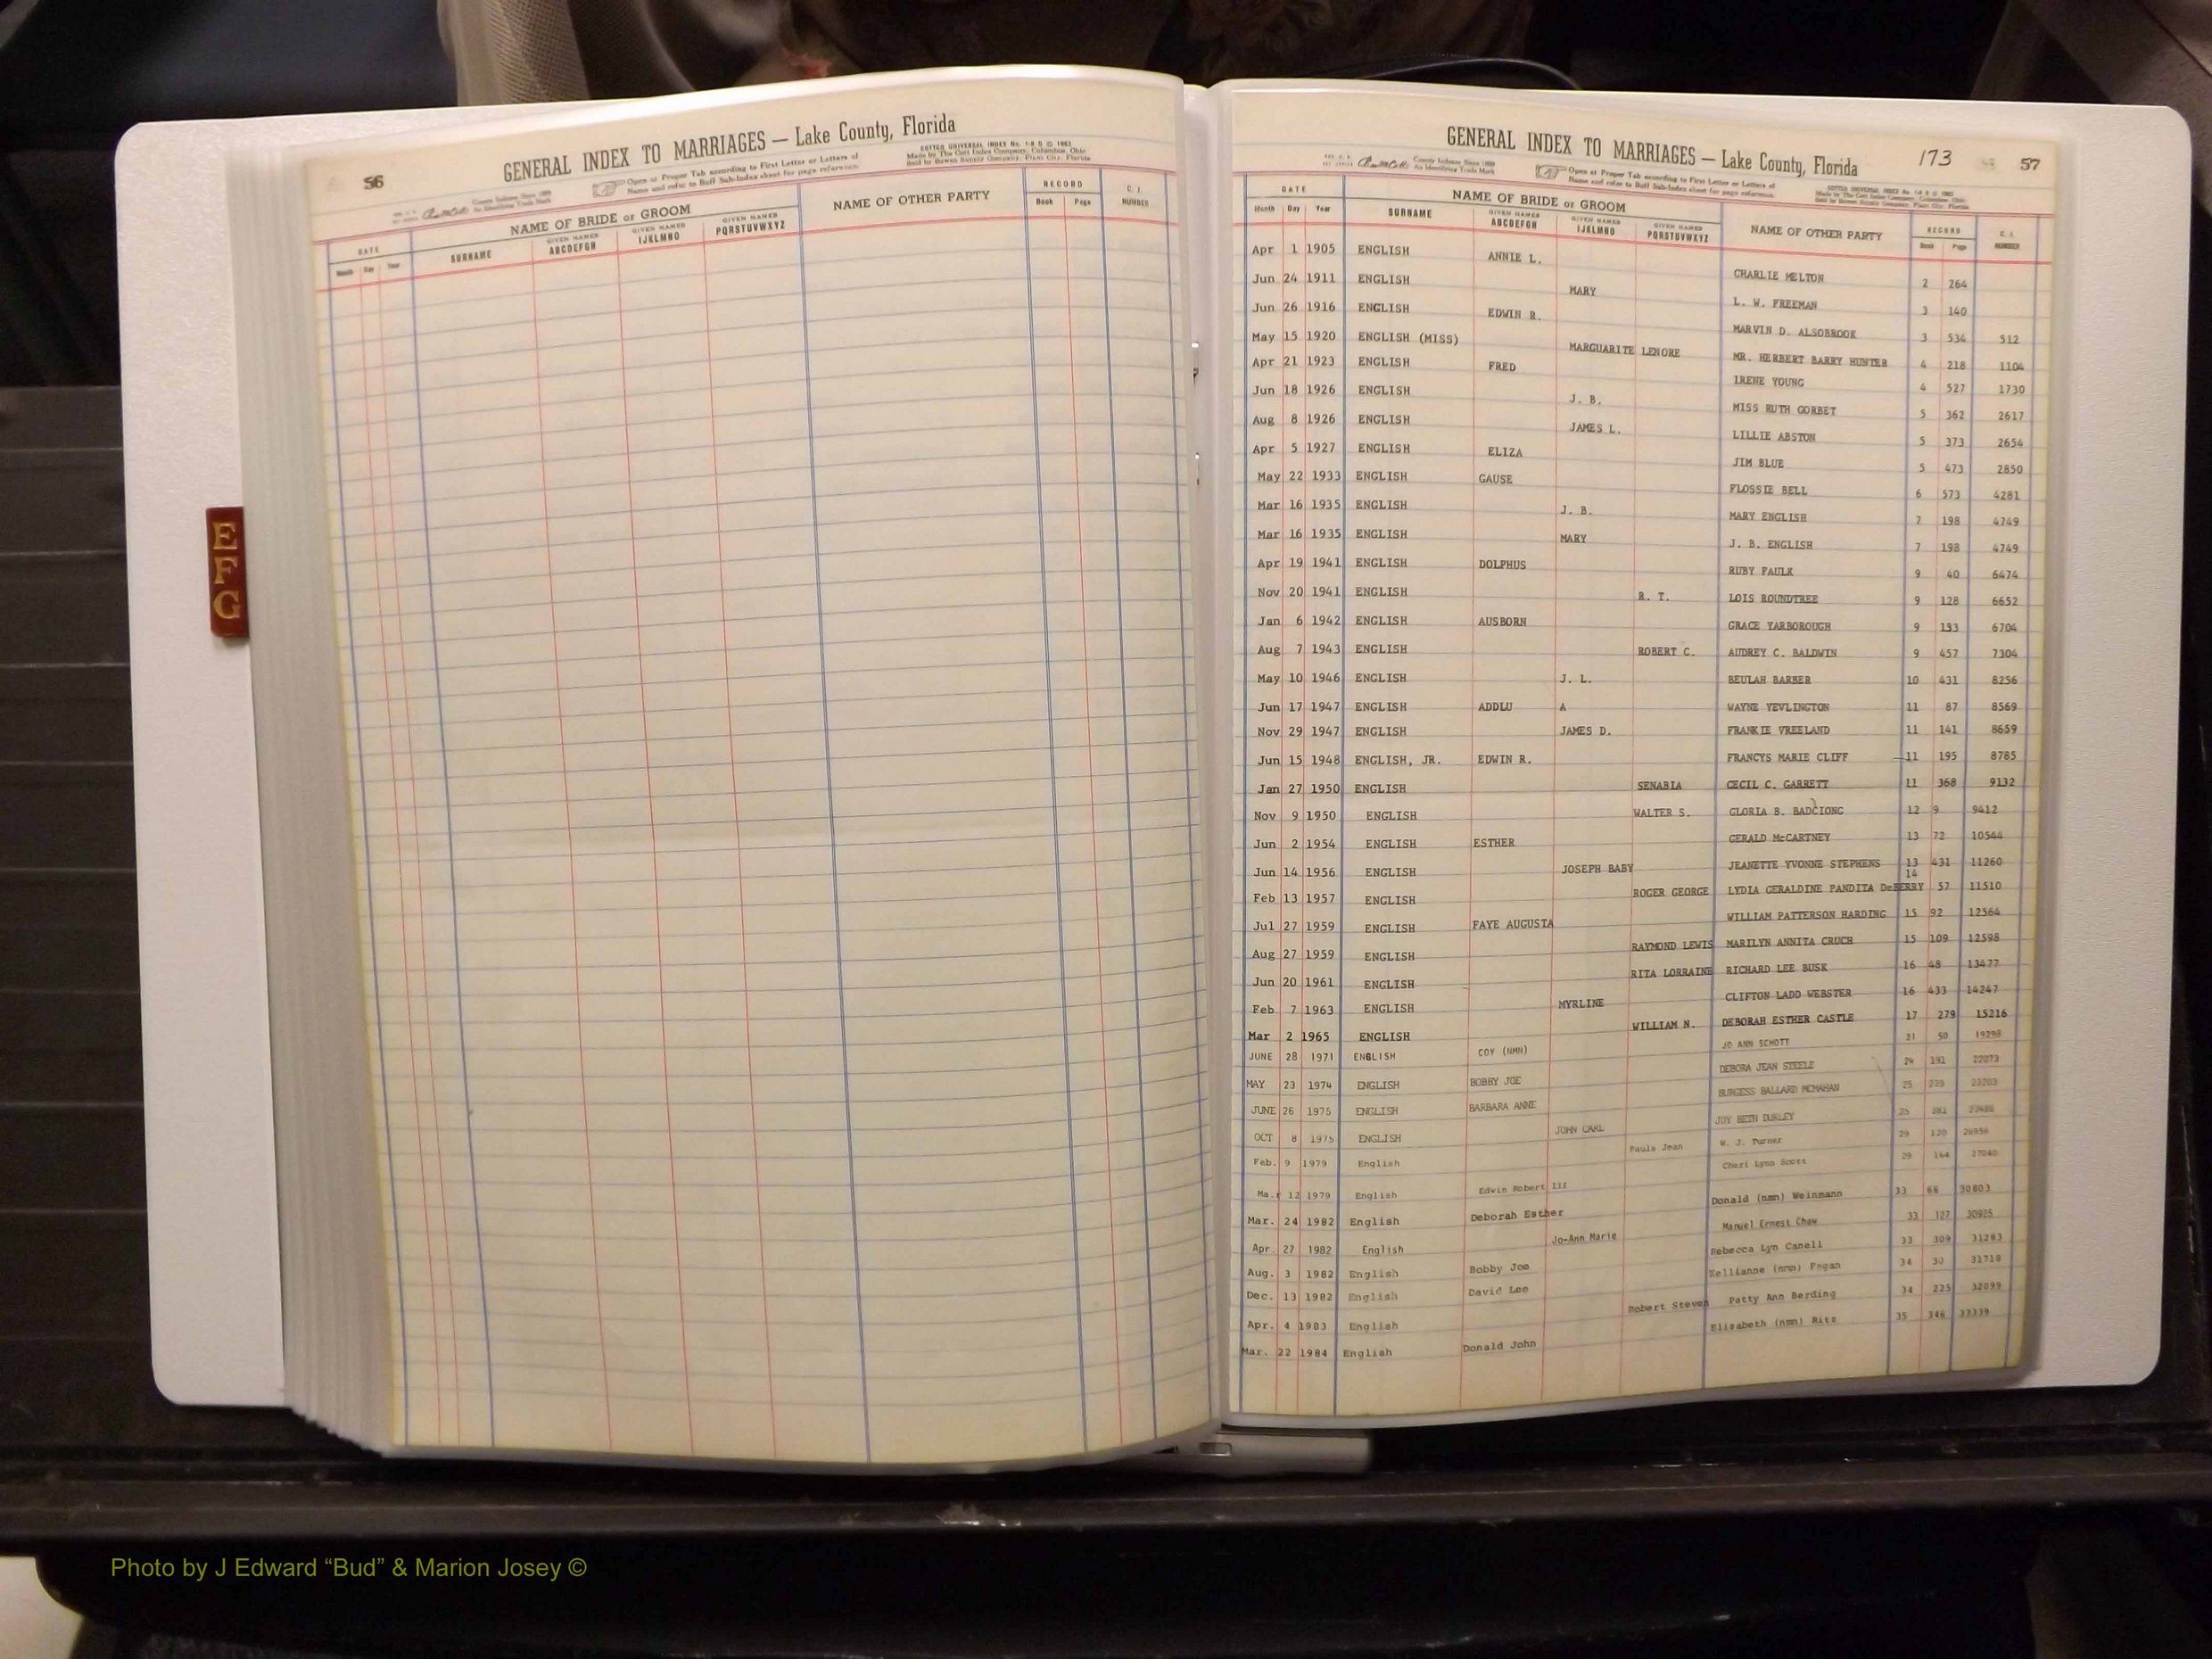 56
GENERAL INDEX TO MARRIAGES — Lake County, Florida
Open at Proper Tab according to First Letter or Letters of
Name and refer to Buff Sub-Index sheet for page reference.
DATE NAME OF BRIDE or GROOM NAME OF OTHER PARTY RECORD C. I. NUMBER
Month Day Year SURNAME GIVEN NAMES ABCDEFGH GIVEN NAMES IJKLMNO GIVEN NAMES PQRSTUVWXYZ Book Page
E
F
G
GENERAL INDEX TO MARRIAGES — Lake County, Florida 173 57
Open at Proper Tab according to First Letter or Letters of
Name and refer to Buff Sub-Index sheet for page reference.
DATE NAME OF BRIDE or GROOM NAME OF OTHER PARTY RECORD C. I. NUMBER
Month Day Year SURNAME GIVEN NAMES ABCDEFGH GIVEN NAMES IJKLMNO GIVEN NAMES PQRSTUVWXYZ Book Page
Apr 1 1905 ENGLISH ANNIE L. CHARLIE MELTON 2 264
Jun 24 1911 ENGLISH MARY L. W. FREEMAN 3 140
Jun 26 1916 ENGLISH EDWIN R. MARVIN D. ALSOBROOK 3 534 512
May 15 1920 ENGLISH (MISS) MARGUARITE LENORE MR. HERBERT BARRY HUNTER 4 218 1104
Apr 21 1923 ENGLISH FRED IRENE YOUNG 4 527 1730
Jun 18 1926 ENGLISH J. B. MISS RUTH GORBET 5 362 2617
Aug 8 1926 ENGLISH JAMES L. LILLIE ABSTON 5 373 2654
Apr 5 1927 ENGLISH ELIZA JIM BLUE 5 473 2850
May 22 1933 ENGLISH GAUSE FLOSSIE BELL 6 573 4281
Mar 16 1935 ENGLISH J. B. MARY ENGLISH 7 198 4749
Mar 16 1935 ENGLISH MARY J. B. ENGLISH 7 198 4749
Apr 19 1941 ENGLISH DOLPHUS RUBY FAULK 9 40 6474
Nov 20 1941 ENGLISH R. T. LOIS ROUNDTREE 9 128 6652
Jan 6 1942 ENGLISH AUSBORN GRACE YARBOROUGH 9 153 6704
Aug 7 1943 ENGLISH ROBERT C. AUDREY C. BALDWIN 9 457 7304
May 10 1946 ENGLISH J. L. BEULAH BARBER 10 431 8256
Jun 17 1947 ENGLISH ADDLU A WAYNE YEVLINGTON 11 87 8569
Nov 29 1947 ENGLISH JAMES D. FRANKIE VREELAND 11 141 8659
Jun 15 1948 ENGLISH, JR. EDWIN R. FRANCYS MARIE CLIFF 11 195 8785
Jan 27 1950 ENGLISH SENABIA CECIL C. GARRETT 11 368 9132
Nov 9 1950 ENGLISH WALTER S. GLORIA B. BADCIONG 12 9 9412
Jun 2 1954 ENGLISH ESTHER GERALD McCARTNEY 13 72 10544
Jun 14 1956 ENGLISH JOSEPH BABY JEANETTE YVONNE STEPHENS 13 431 11260
Feb 13 1957 ENGLISH ROGER GEORGE LYDIA GERALDINE PANDITA DeBERRY 14 57 11510
Jul 27 1959 ENGLISH FAYE AUGUSTA WILLIAM PATTERSON HARDING 15 92 12564
Aug 27 1959 ENGLISH RAYMOND LEWIS MARILYN ANNITA CRUCH 15 109 12598
Jun 20 1961 ENGLISH RITA LORRAINE RICHARD LEE BUSK 16 48 13477
Feb 7 1963 ENGLISH MYRLINE CLIFTON LADD WEBSTER 16 433 14247
Mar 2 1965 ENGLISH WILLIAM N. DEBORAH ESTHER CASTLE 17 279 15216
JUNE 28 1971 ENGLISH COY (NMN) JO ANN SCHOTT 21 50 19298
MAY 23 1974 ENGLISH BOBBY JOE DEBORA JEAN STEELE 24 191 22073
JUNE 26 1975 ENGLISH BARBARA ANNE BURGESS BALLARD MCMAHAN 25 239 23203
OCT 8 1975 ENGLISH JOHN CARL JOY BETH DURLEY 25
Feb. 9 1979 English Paula Jean W. J. Turner 29 120 26956
Mar 12 1979 English Edwin Robert III Cheri Lynn Scott 29 164 27040
Mar. 24 1982 English Deborah Esther Donald (nmn) Weinmann 33 66 30803
Apr 27 1982 English Jo-Ann Marie Manuel Ernest Chaw 33 127 30925
Aug. 3 1982 English Bobby Joe Rebecca Lyn Canell 33 309 31283
Dec. 13 1982 English David Lee Kellianne (nmn) Fagan 34 30 31718
Apr. 4 1983 English Robert Steven Patty Ann Berding 34 225 32099
Mar. 22 1984 English Donald John Elizabeth (nmn) Ritz 35 346 33339
Photo by J Edward “Bud” & Marion Josey ©